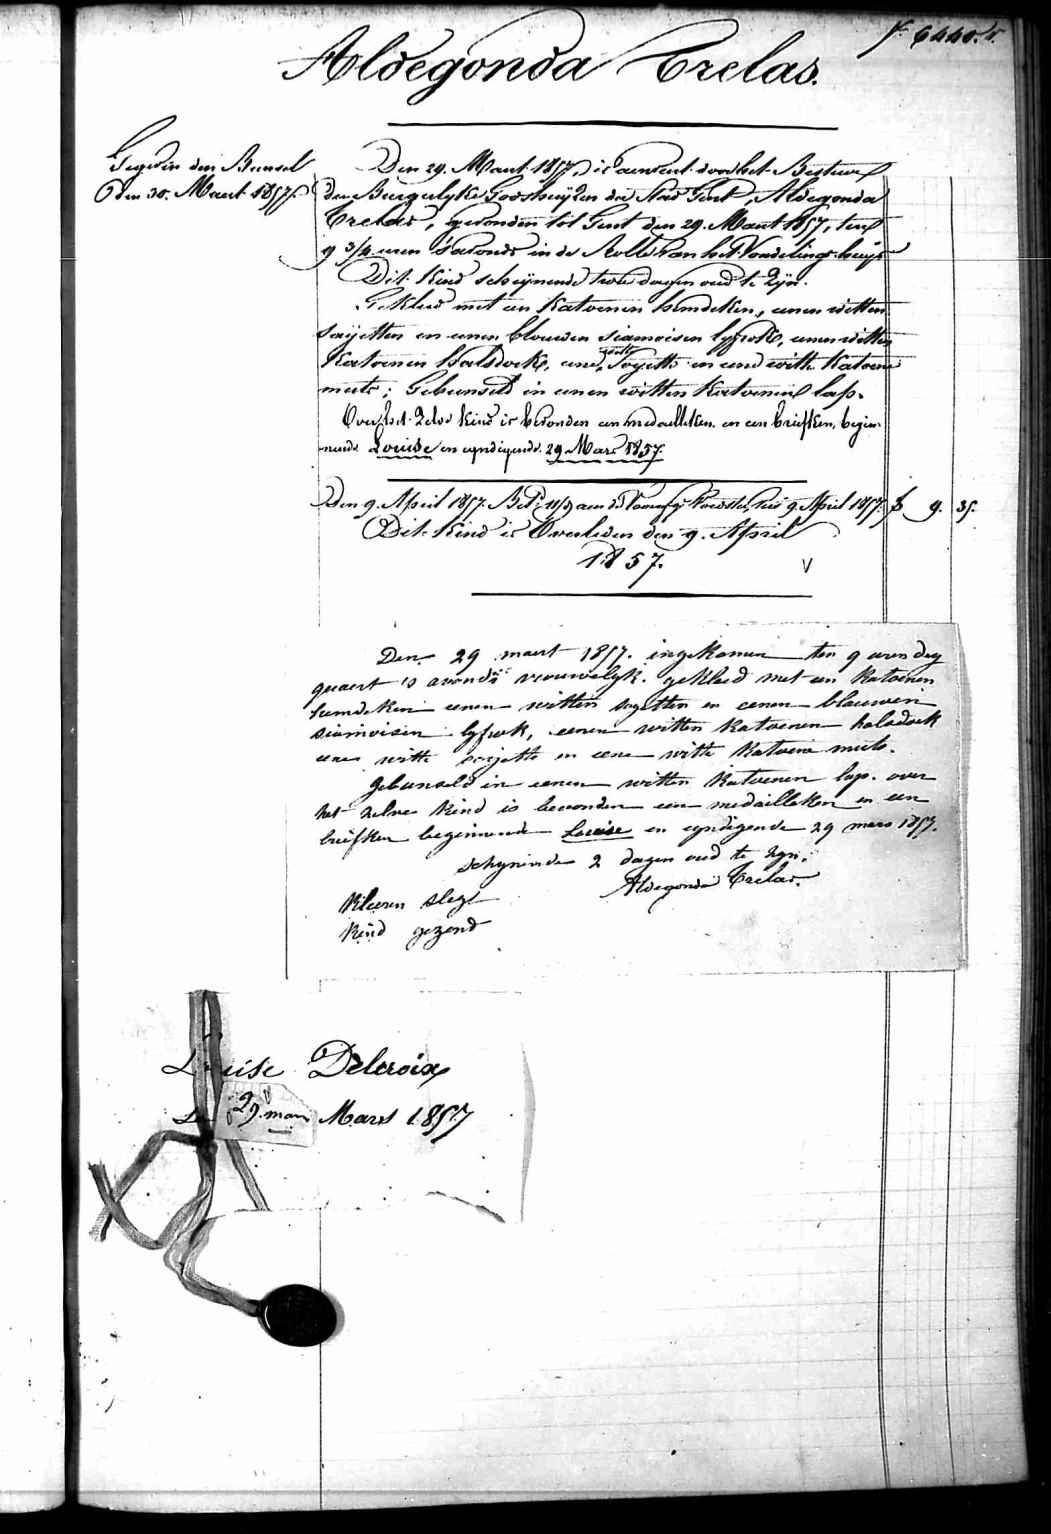 f° 6440. v.
Aldegonda Crelas.
Gegeven den Bunsel
Den 30. Maart 1857.
Den 29. Maart 1857, is aenveut door het Bestuur
der Burgelyke Godshuijzen der Stad Gent, Aldegonda
Crelas, gevonden tot Gent den 29. Maart 1857, ten
9 3/4 uren s'avonds in de Rolle van het Vondelingshuijs
Dit Kind schynende twee dagen oud te Zijn.
Gekleed met een Katoenen hemdeken, eenen witten
sayetten en eenen blouwen siamoisen lyfrok, eenen witten
Katoenen Halsdoek, eene witte Sayette en eene witte Katoene
muts; Gebunseld in eenen witten Katoenen lap.
Over het Zelve kind is bevonden een medaelleken en een briefken, begin-
nende Louise en eyndigende 29 Mars 1857.
Den 9. April 1857. aen de Voedster, tot 9. April 1857. f 9. 35.
Dit Kind is Overleden den 9. April
1857.
Den 29 maert 1857. ingekomen ten 9 uren dry
quaert s avonds vrouwelyk. gekleed met een Katoenen
hemdeken eenen witten sayetten en eenen blauwen
siamoisen lyfrok, eenen witten Katoenen halsdoek
eene witte sayette en eene witte Katoene muts.
Gebunseld in eenen witten Katoenen lap. over
het zelve kind is bevonden een medailleken en een
briefken beginnende Louise en eyndigende 29 mars 1857.
schynende 2 dagen oud te zyn.
Aldegonda Crelas.
Kleeren slegt
Kind gezond
Louise Delcroix
29. mars Mars 1857